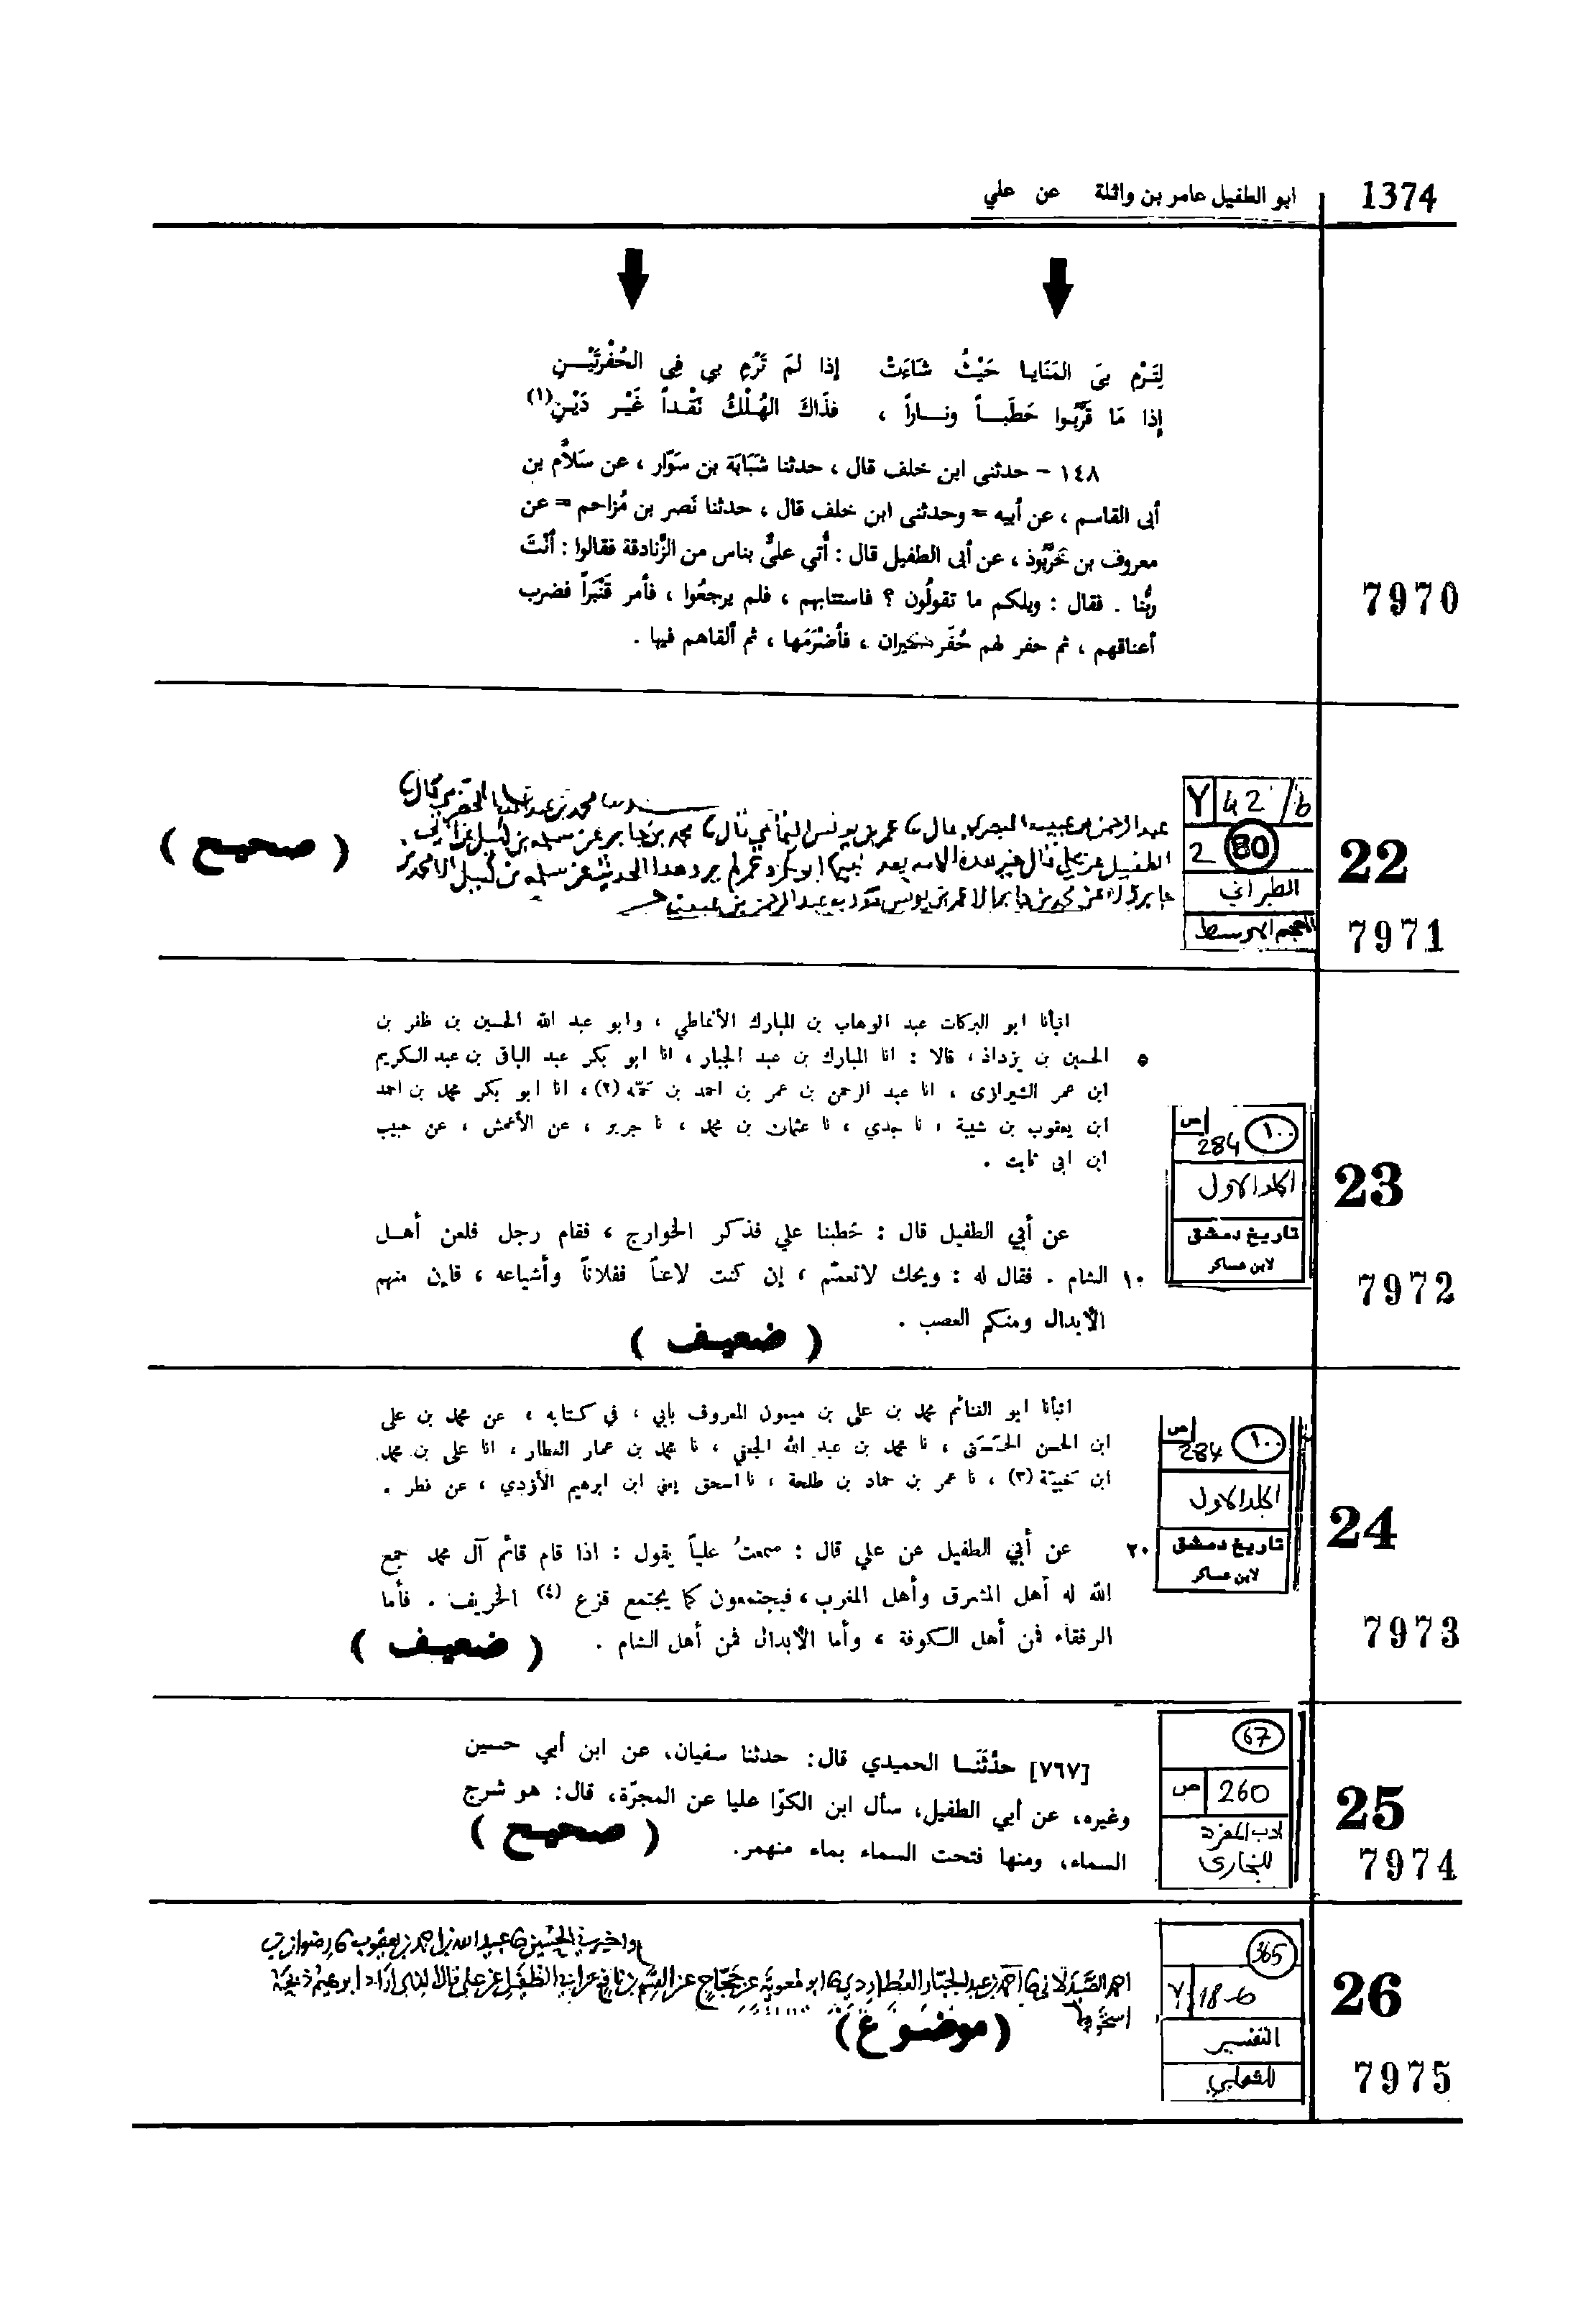 1374
ابو الطفيل عامر بن واثلة عن علي
لِتَرْمِ بِيَ المَنَايا حَيْثُ شَاءَتْ إذا لَمْ تَرْمِ بي فِى الحُفْرَتَيْـــنِ
إذا مَا قَرَّبُوا حَطَبـــاً ونـــاراً ، فذَاكَ الهُلْكُ نَقْداً غَيْر دَيْنِ(١)
١٤٨ - حدثنى ابن خلف قال ، حدثنا شَبَابَة بن سَوّار ، عن سَلاَّم بن
أبى القاسم ، عن أبيه = وحدثنى ابن خلف قال ، حدثنا نَصر بن مُزاحم = عن
معروف بن خَرَّبُوذ ، عن أبى الطفيل قال : أُتي علىٌّ بناس من الزَّنادقة فقالوا : أنْتَ
ربُّنا . فقال : ويلكم ما تقولُون ؟ فاستتابهم ، فلم يرجعُوا ، فأمر قَنْبَراً فضرب
أعناقهم ، ثم حفر لهم حُفَر نيران ، فأضْرَمَها ، ثم ألقاهم فيها .
7970
محمد بن عبد الله الحضرمي قال
عبد الرحمن بن عبيد البصري قال عمر بن يونس اليمامي قال محمد بن جابر عن سلمة بن كهيل عن أبي
الطفيل عن علي قال خير هذه الامة بعد نبيها ابو بكر وعمر لم يرو هذا الحديث عن سلمة بن كهيل الا محمد بن
جابر ولا عن محمد بن جابر الا عمر بن يونس تفرد به عبد الرحمن بن عبيد
( صحيح )
Y 42 /b
2 80
الطبراني
المعجم الاوسط
22
7971
انبأنا ابو البركات عبد الوهاب بن المبارك الأنماطي ، وابو عبد الله الحسين بن ظفر بن
٥ الحسين بن يزداذ ، قالا : انا المبارك بن عبد الجبار ، انا ابو بكر عبد الباقي بن عبد الكريم
ابن عمر الشيرازى ، انا عبد الرحمن بن عمر بن احمد بن حمّه (٢) ، انا ابو بكر محمد بن احمد
ابن يعقوب بن شيبة ، نا جدي ، نا عثمان بن محمد ، نا جرير ، عن الأعمش ، عن حبيب
ابن ابى ثابت .
عن أبي الطفيل قال : خطبنا علي فذكر الخوارج ، فقام رجل فلعن أهل
١٠ الشام . فقال له : ويحك لاتعمّم ، إن كنت لاعناً ففلاناً وأشياعه ، فإن منهم
الأبدال ومنكم العصب .
( ضعيف )
١٠٠ ص 284
المجلد الاول
تاريخ دمشق
لابن عساكر
23
7972
انبأنا ابو الغنائم محمد بن على بن ميمون المعروف بابي ، في كتابه ، عن محمد بن على
ابن الحسن الحَسَنى ، نا محمد بن عبد الله الجعفي ، نا محمد بن عمار العطار ، انا على بن محمد
ابن خبيّة (٣) ، نا عمر بن حماد بن طلحة ، نا اسحق يعني ابن ابرهيم الأزدي ، عن فطر .
٢٠ عن أبي الطفيل عن علي قال : سمعتُ علياً يقول : اذا قام قائم آل محمد جمع
الله له أهل المشرق وأهل المغرب ، فيجتمعون كما يجتمع قزع (٤) الخريف . فأما
الرفقاء فمن أهل الكوفة ، وأما الأبدال فمن أهل الشام .
( ضعيف )
١٠٠ ص 284
المجلد الاول
تاريخ دمشق
لابن عساكر
24
7973
[٧٦٧] حدَّثَنَـا الحميدي قال: حدثنا سفيان، عن ابن أبي حسين
وغيره، عن أبي الطفيل، سأل ابن الكوّا عليا عن المجرّة، قال: هو شرج
السماء، ومنها فتحت السماء بماء منهمر.
( صحيح )
67
260 ص
ادب المفرد
للبخاري
25
7974
واخبرني الحسين عبيد الله بن احمد بن يعقوب رضوان بن
احمد الصيدلاني احمد بن عبد الجبار العطاردي ابو معوية عن حجاج عن القسم بن نافع عن ابي الطفيل عن علي قال الذي اراد ابرهيم ذبحه
اسحق
( موضوع )
365
Y 18-b
التفسير
للثعلبي
26
7975